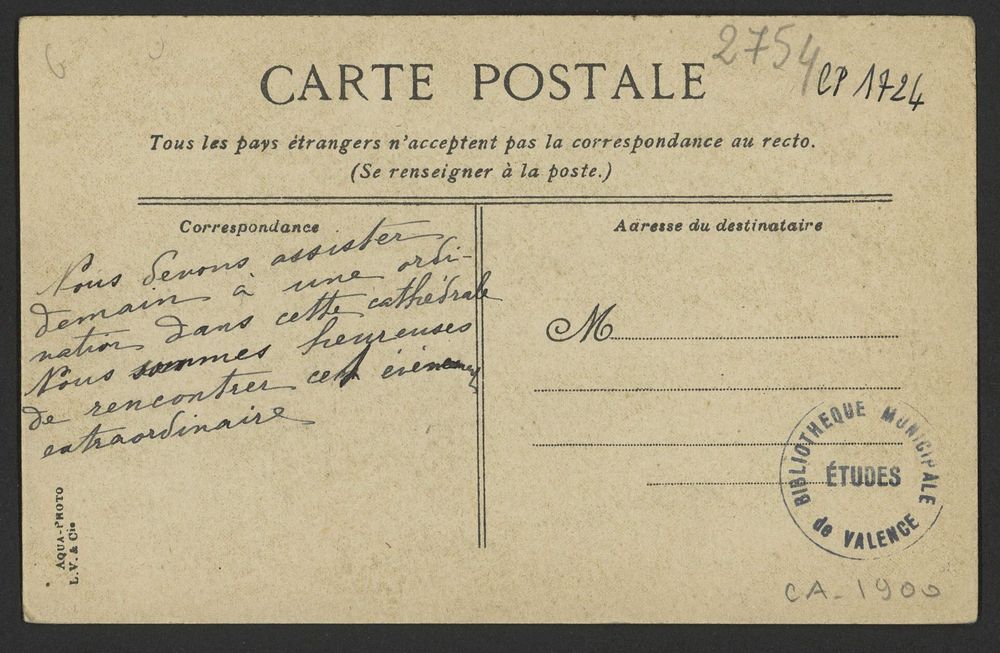 2754
CP 1724
CARTE POSTALE
Tous les pays étrangers n'acceptent pas la correspondance au recto.
(Se renseigner à la poste.)
Correspondance
Nous devons assister
demain à une ordi-
nation dans cette cathédrale
Nous sommes heureuses
de rencontrer cet évènement
extraordinaire
Adresse du destinataire
M
BIBLIOTHEQUE MUNICIPALE
ÉTUDES
de VALENCE
AQUA-PHOTO
L.V. & Cie
CA-1900